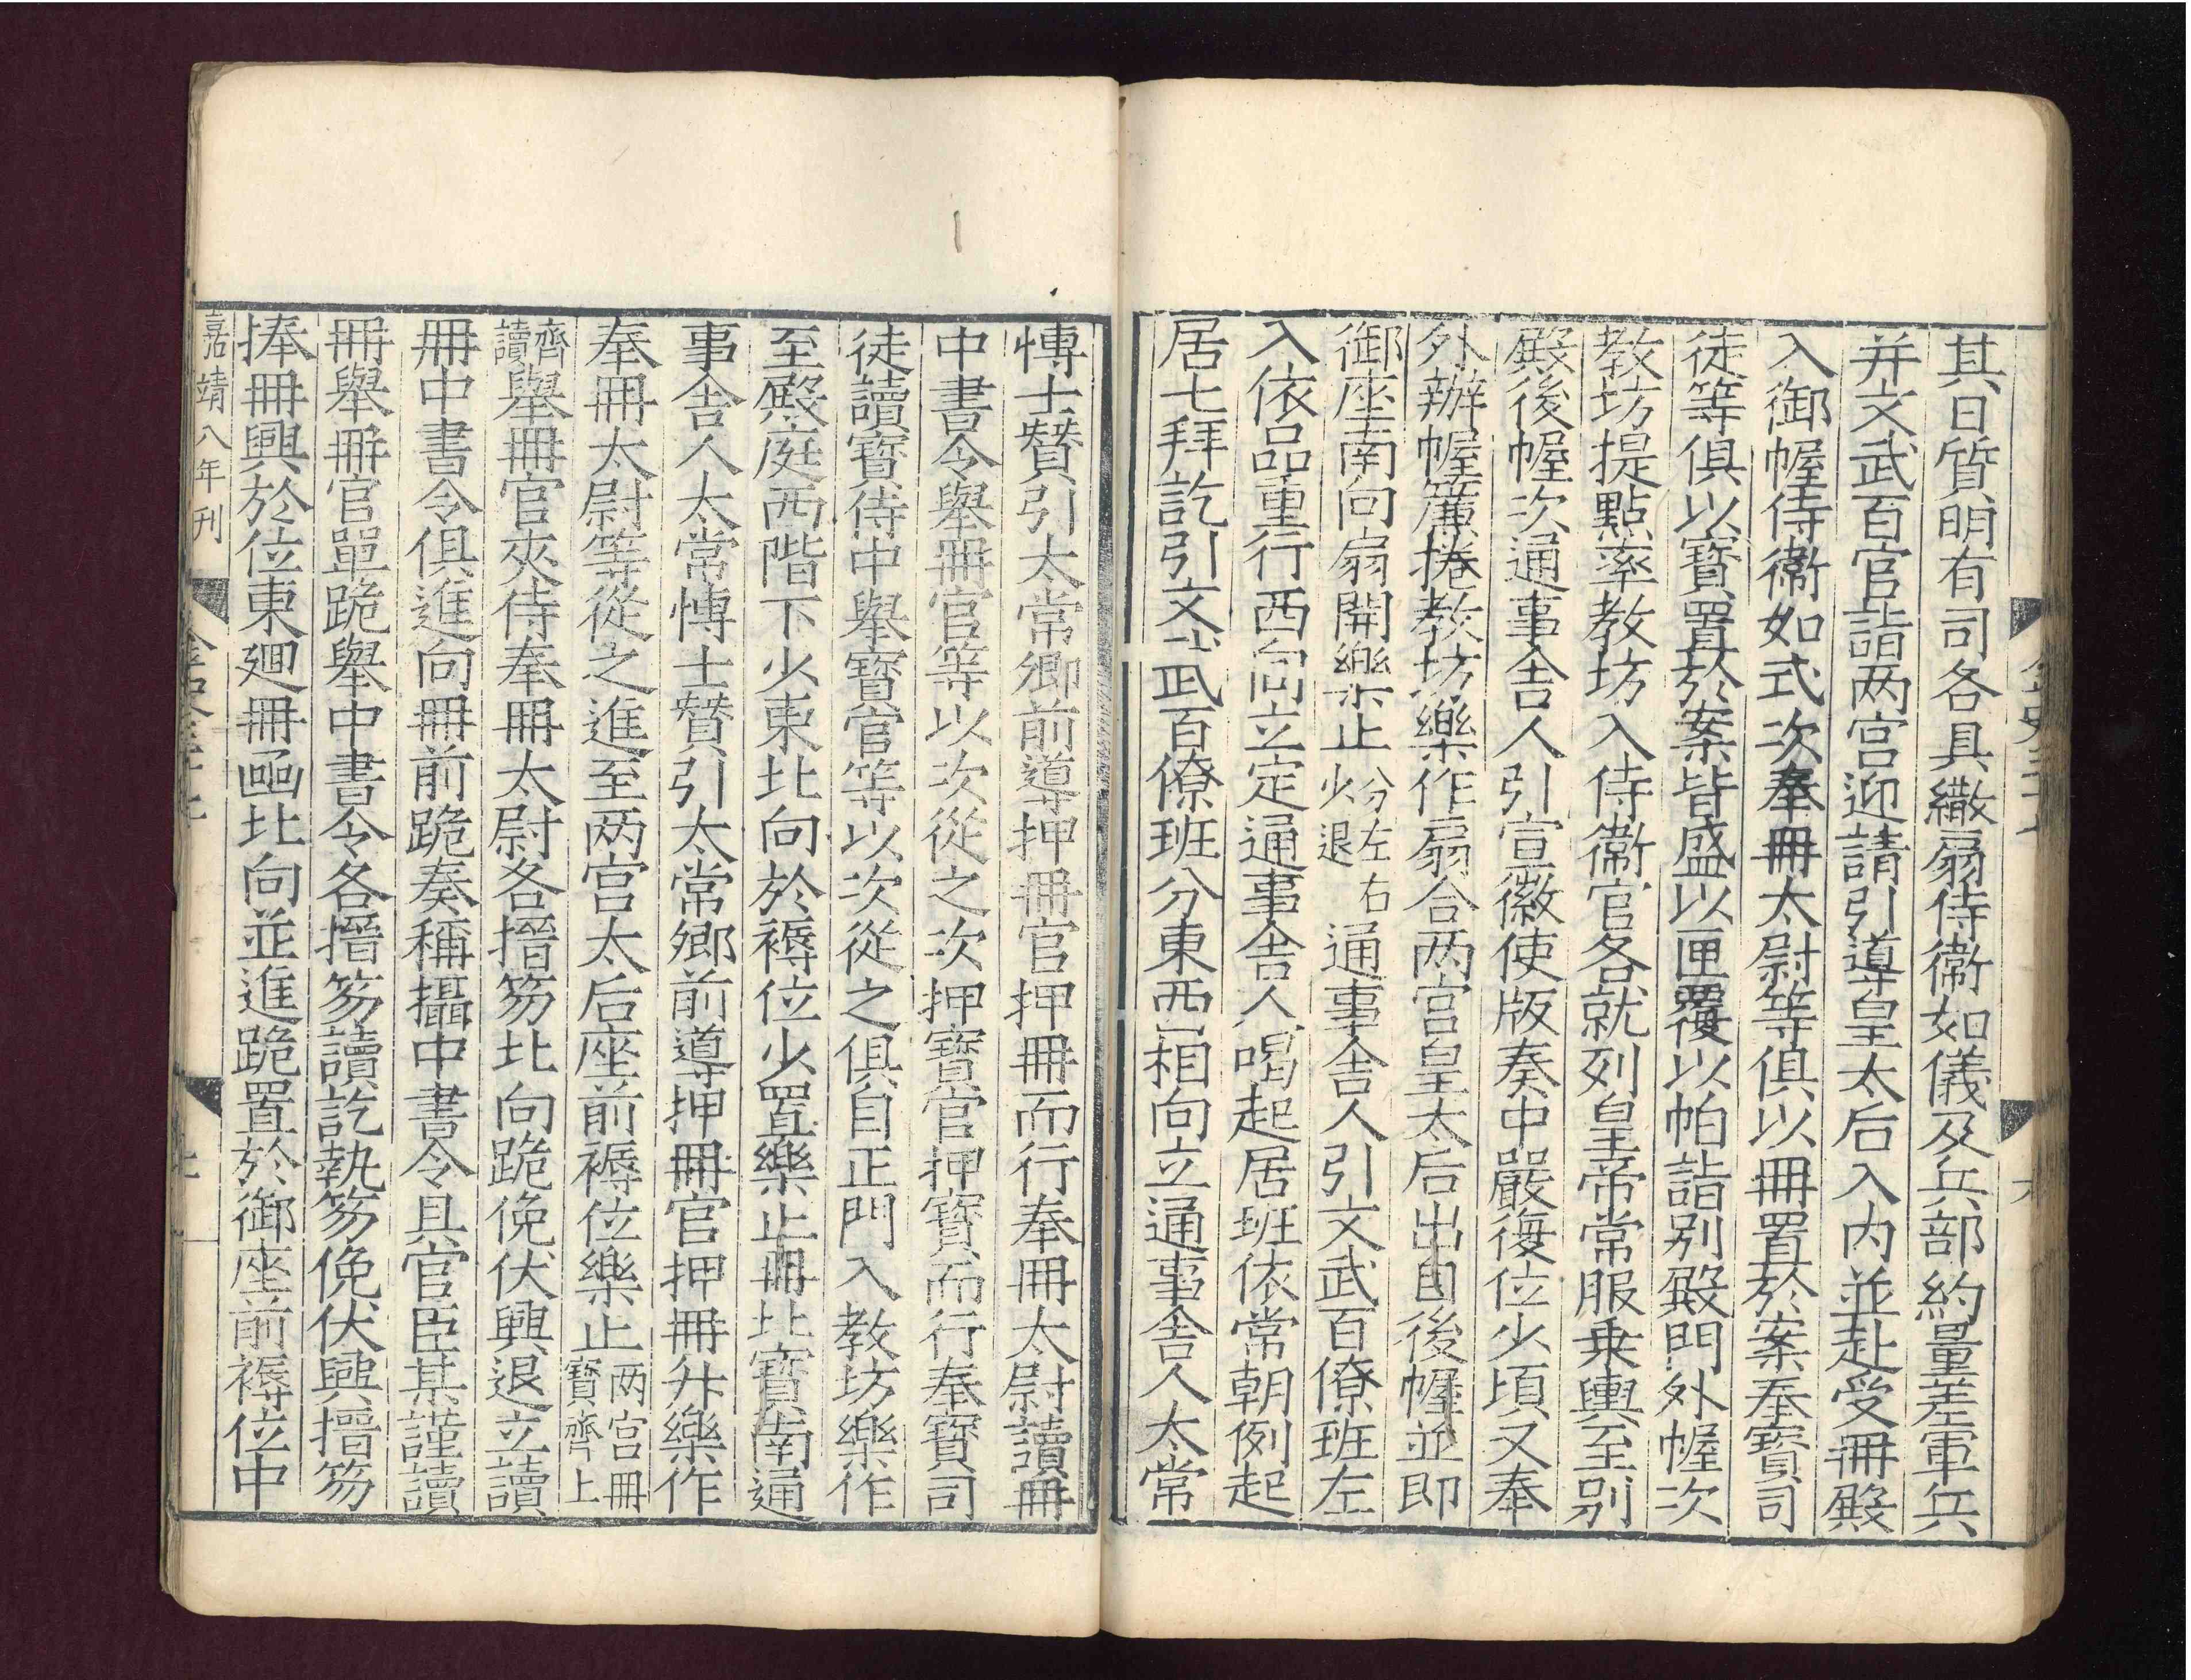 其日質明有司各具繖扇侍衞如儀及兵部約量差軍兵
并文武百官詣两宫迎請引導皇太后入内並赴受冊殿
入御幄侍衞如式次奉冊太尉等俱以冊置於案奉寳司
徒等俱以寳置於案皆盛以匣覆以帕詣别殿門外幄次
教坊提點率教坊入侍衞官各就列皇帝常服乗輿至别
殿後幄次通事舎人引宣徽使版奏中嚴復位少頃又奏
外辦幄簾捲教坊樂作扇合两宫皇太后出自後幄並即
御座南向扇開樂止分左右少退通事舎人引文武百僚班左
入依品重行西向立定通事舎人喝起居班依常朝例起
居七拜訖引文武百僚班分東西相向立通事舎人太常
愽士贊引太常卿前導押冊官押冊而行奉冊太尉讀冊
中書令舉冊官等以次從之次押寳官押寳而行奉寳司
徒讀寳侍中舉寳官等以次從之俱自正門入教坊樂作
至殿庭西階下少東北向於褥位少置樂止冊北寳南通
事舎人太常愽士贊引太常卿前導押冊官押冊升樂作
奉冊太尉等從之進至两宫太后座前褥位樂止两宫冊寳齊上
齊讀舉冊官夾侍奉冊太尉各搢笏北向跪俛伏興退立讀
冊中書令俱進向冊前跪奏稱攝中書令具官臣某謹讀
冊舉冊官單跪舉中書令各搢笏讀訖執笏俛伏興搢笏
捧冊興於位東廻冊凾北向並進跪置於御座前褥位中
嘉靖八年刊